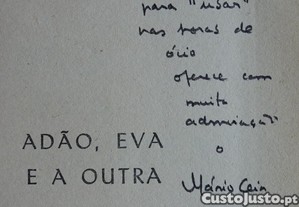 para "usar"
nas horas de
ócio
oferece com
muita
admiração
o
ADÃO, EVA
E A OUTRA
Mário
CustoJusto.pt